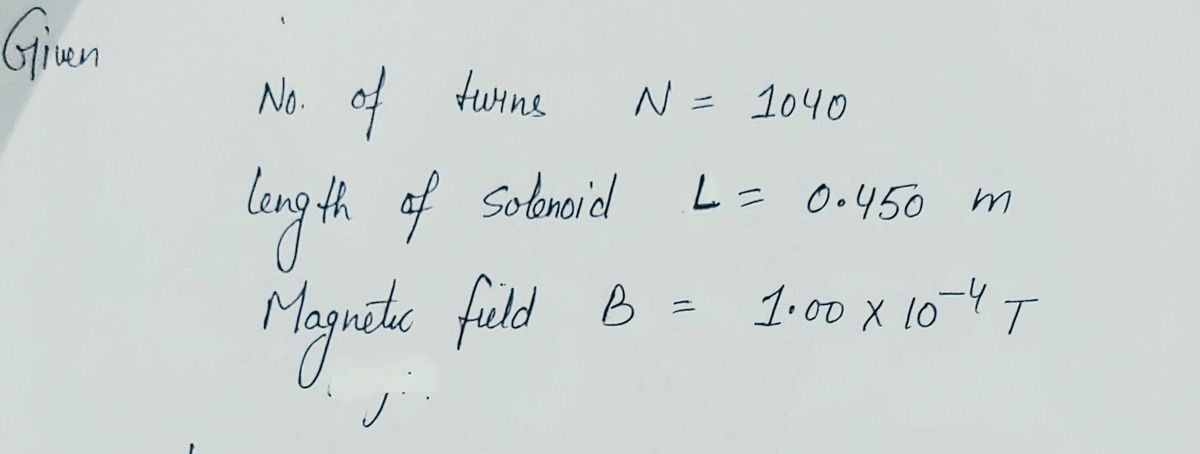 Given
No. of turns N = 1040
length of solenoid L = 0.450 m
Magnetic field B = 1.00 x 10⁻⁴ T